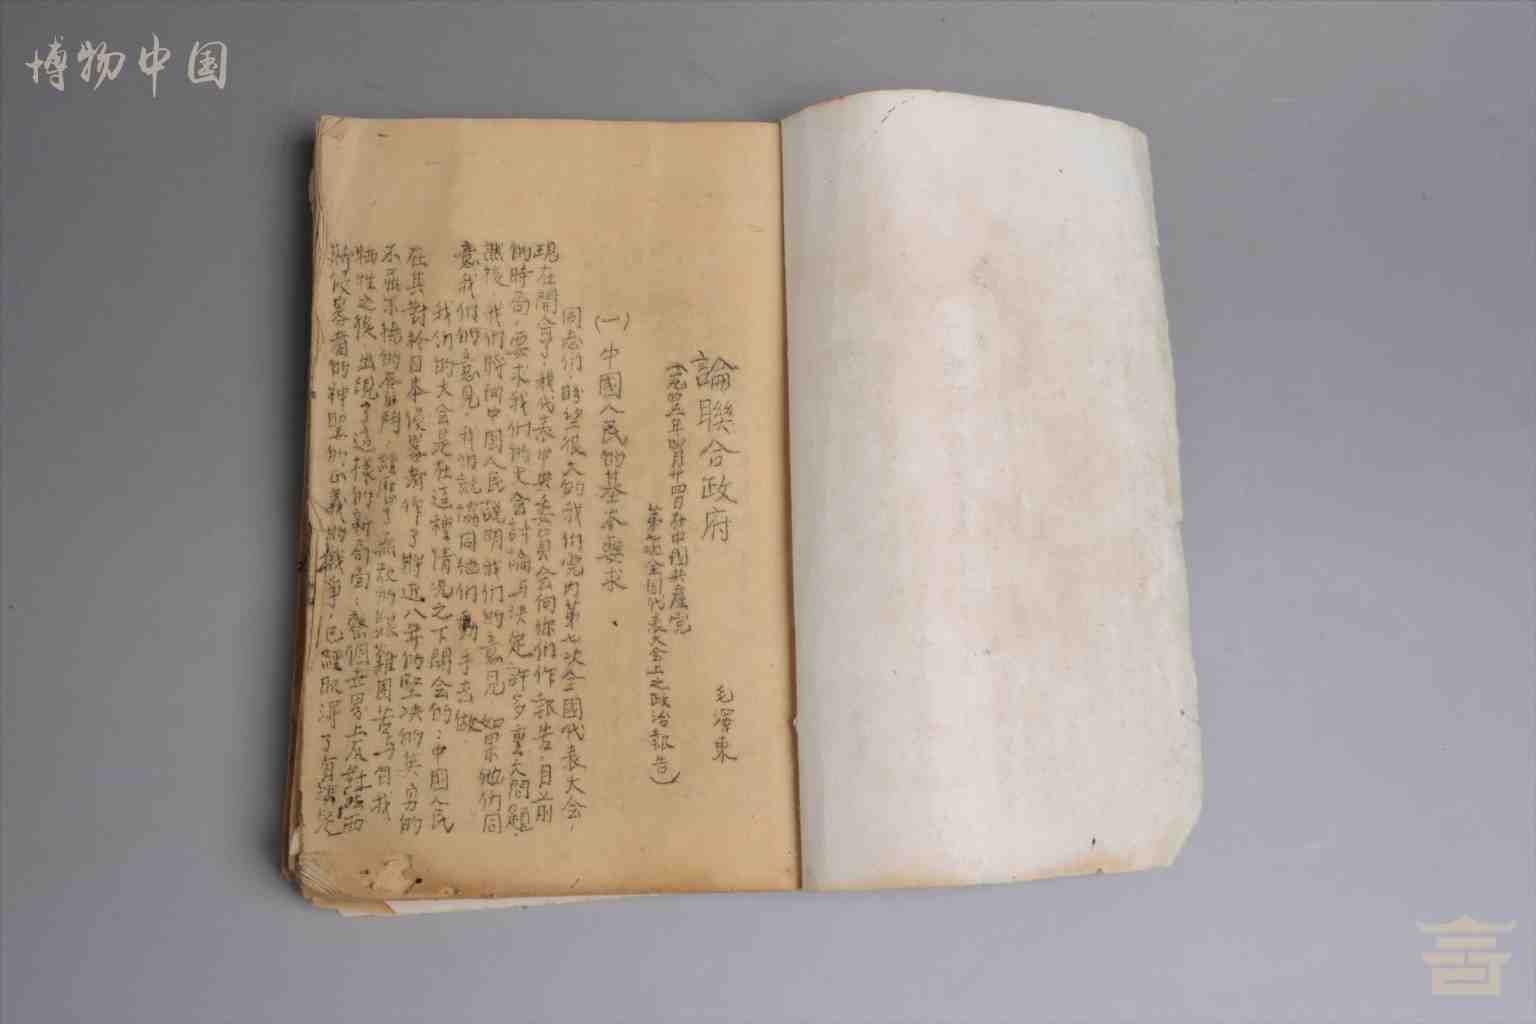 博物中国
論聯合政府
毛澤東
(一九四五年四月廿四日在中國共產党
第七次全国代表大会上之政治報告)
(一)中國人民的基本要求
同志们,盼望很久的我们党的第七次全國代表大会,
現在開会了,我代表中央委員会向你们作報告。目前
的時局,要求我们的大会討論与決定許多重大問題,
然後,我们將向中國人民説明我们的意見,如果他们同
意我们的意見,我们就協同他们動手去做。
我们的大会是在這種情况之下開会的:中國人民
在其對於日本侵畧者作了將近八年的堅决的英勇的
不屈不撓的奮鬥,經歷了無数的艰難困苦与自我
牺牲之後,出現了這樣的新局面:整個世界上反對法西
斯侵畧者的神聖的正義的战争,已經取得了有决定